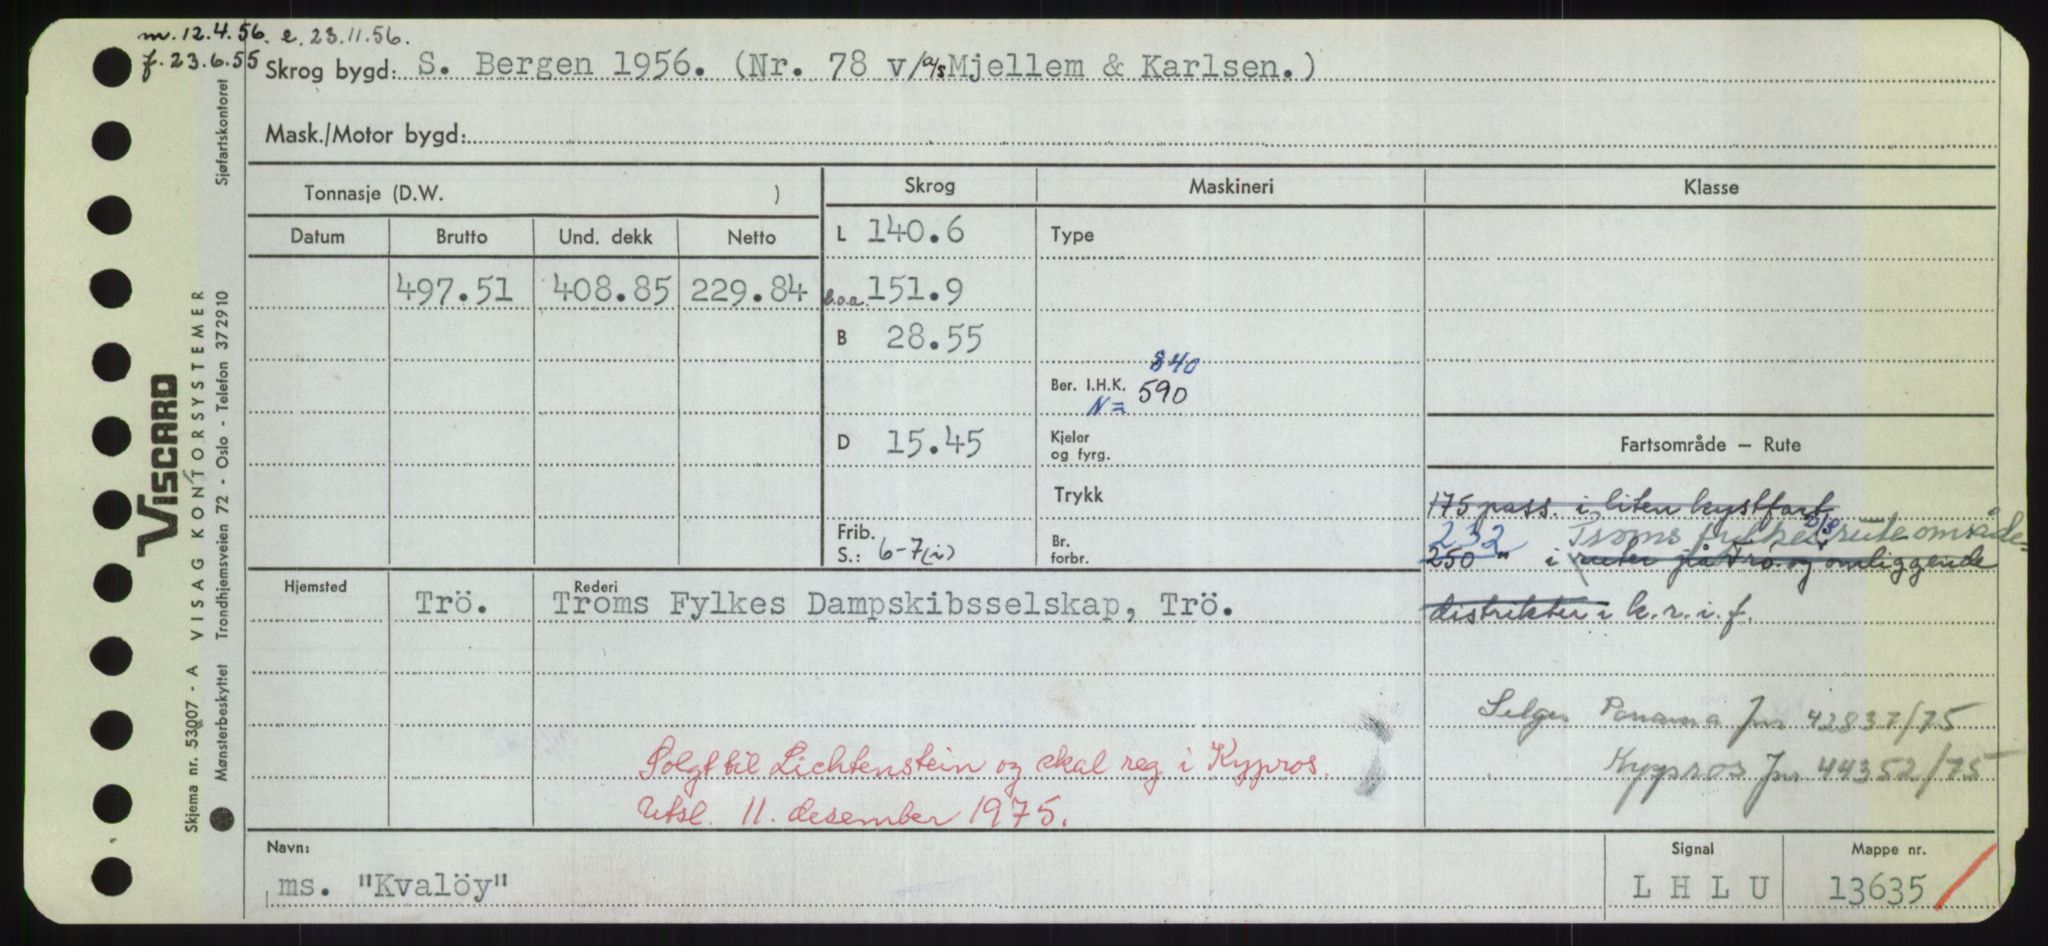 m. 12.4.56. e. 23.11.56.
f. 23.6.55
Skrog bygd: S. Bergen 1956. (Nr. 78 v/a/s Mjellem & Karlsen.)
Mask./Motor bygd:
Tonnasje (D.W. )
Skrog Maskineri Klasse
Datum Brutto Und. dekk Netto
L 140.6 Type
497.51 408.85 229.84
l.o.a. 151.9
B 28.55
840
Ber. I.H.K. 590
N=
D 15.45
Kjeler og fyrg.
Fartsområde – Rute
Trykk
175 pass. i liten kystfart
232 Troms fylkes ruteområde
Frib. S.: 6-7(i)
Br. forbr.
250 " i ruter på Trö. og omliggende
distrikter i k.r.i.f.
Hjemsted Rederi
Trö. Troms Fylkes Dampskibsselskap, Trö.
Selges Panama Jnr 42837/75
Kypros Jnr 44352/75
Solgt til Lichtenstein og skal reg i Kypros.
Utsl. 11. desember 1975.
Navn: Signal Mappe nr.
ms. "Kvalöy" L H L U 13635
Skjema nr. 53007 - A VISAG KONTORSYSTEMER
VISCARD
Mønsterbeskyttet Trondhjemsveien 72 - Oslo - Telefon 372910 Sjøfartskontoret